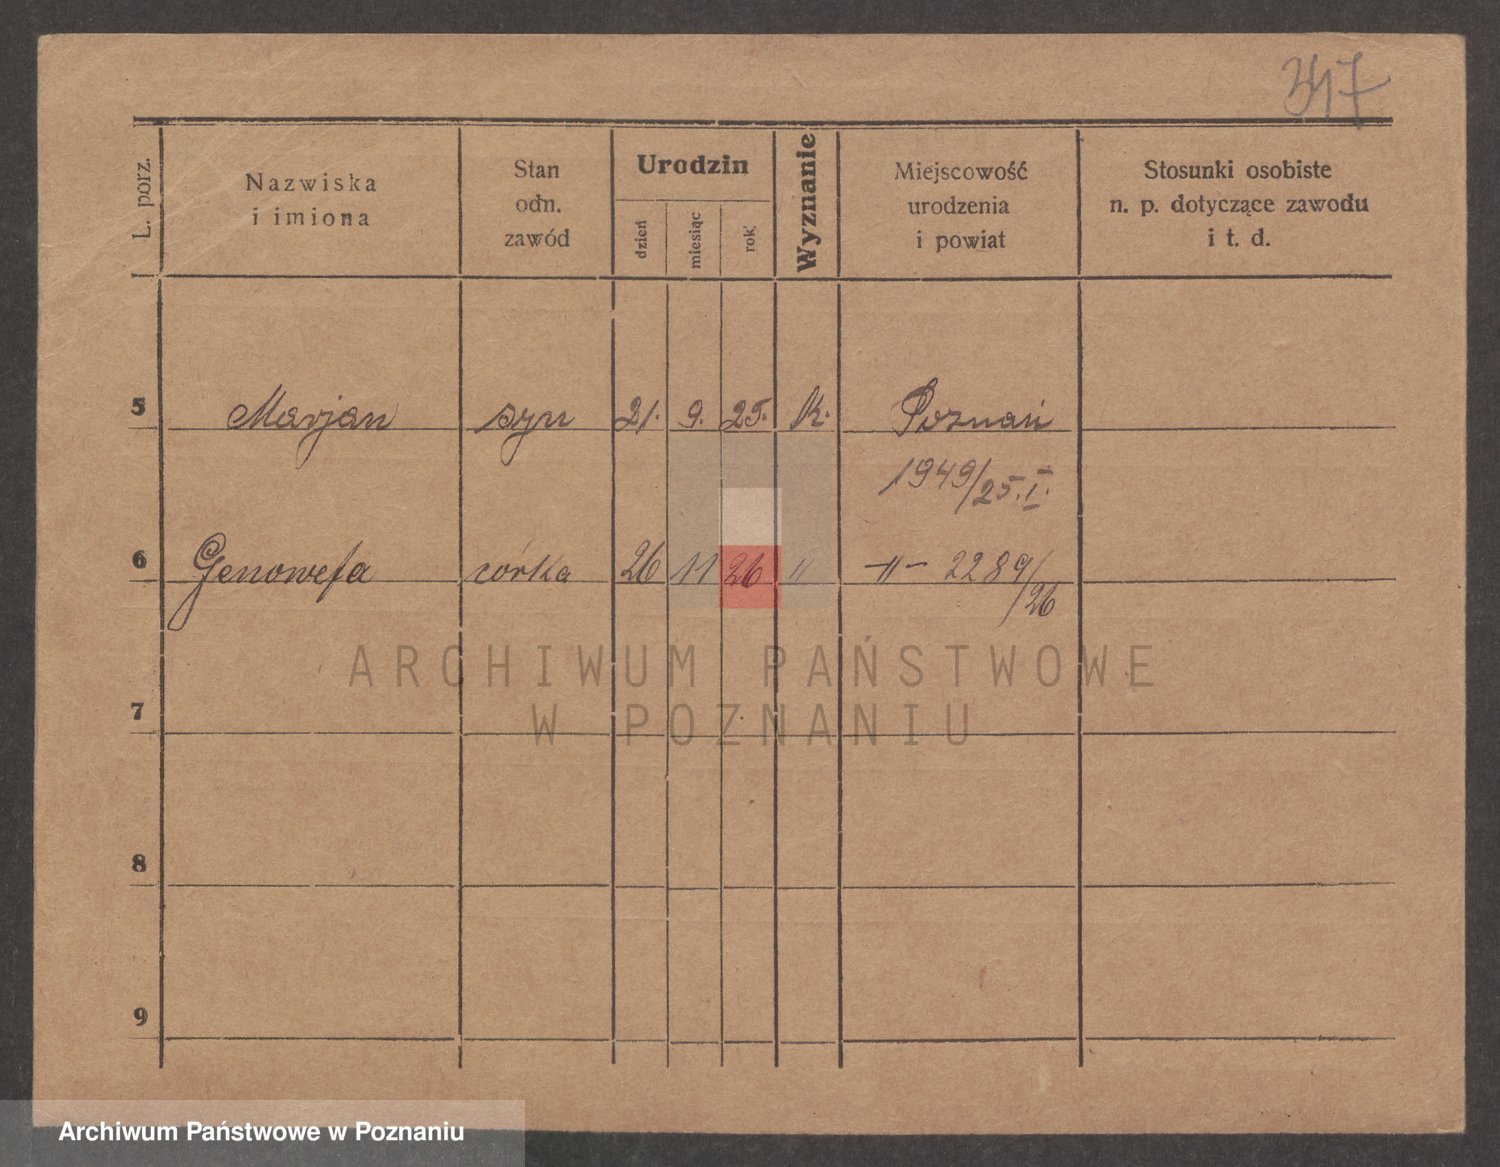 347
L. porz.
Nazwiska
i imiona
Stan
odn.
zawód
Urodzin
dzień
miesiąc
rok
Wyznanie
Miejscowość
urodzenia
i powiat
Stosunki osobiste
n. p. dotyczące zawodu
i t. d.
5 Marjan syn 21. 9. 25. k. Poznań
1949/25. I.
6 Genowefa córka 26 11 26 " -"- 2289/26
ARCHIWUM PAŃSTWOWE
W POZNANIU
7
8
9
Archiwum Państwowe w Poznaniu